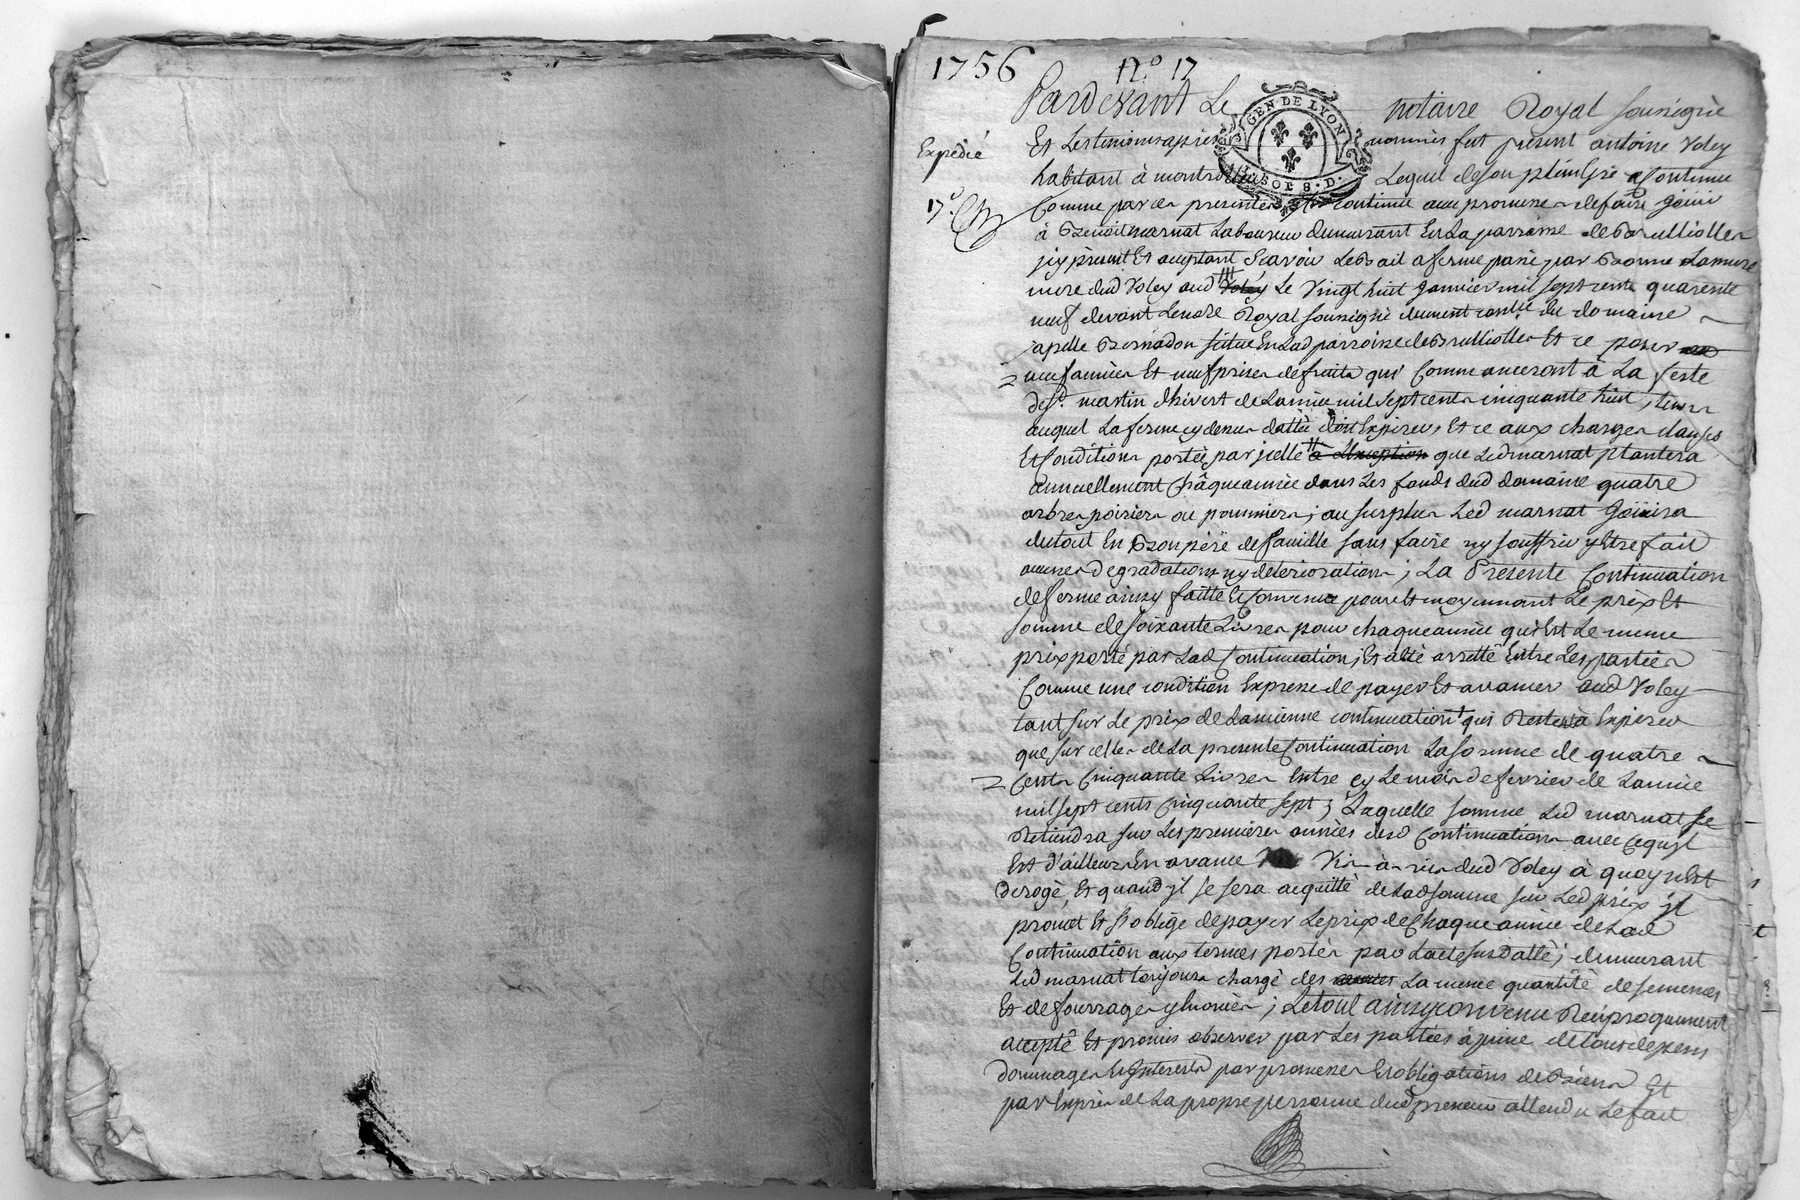 1756 n.o 17
Pardevant Le notaire Royal soussigné
GEN DE LYON
Expedié
Et Les temoins apres nommés fut présent antoine Voley
habitant à Lequel de son plein gré a Continué
Comme par ces presentes continue avec promesse de faire jouir
à Benoit marnat Laboureur demeurant En La parroisse de Brulliolles
jcy présent Et acceptant Scavoir Le Bail a ferme passé par
mere dud Voley aud Voley Le Vingt huit Janvier mil sept cents quarente
neuf devant Le no.re Royal soussigné dument du domaine
apellé situé En Lad parroisse de Brulliolles Et ce pour
neuf années Et neuf prises de fruits qui Commanceront à La feste
de S.t martin d'hivert de L'année mil sept cents cinquante huit, tems
auquel La ferme cy dessus dattée doit Expirer, Et ce aux charges clauses
Et Conditions portées par jcelle a L'Exception que Led marnat plantera
annuellement Châque année dans Les fonds dud domaine quatre
arbres poiriers ou pommiers; au surplus Led marnat Joüira
du tout En Bon pére de famille sans faire ny souffrir y Etre fait
aucunes degradations ny deteriorations; La Presente Continuation
de ferme ainsy faitte Et Convenue pour Et moyennant Le prix Et
somme de soixante Livres pour chaque année qui Est Le meme
prix porté par Lad Continuation, Et a Eté arretté Entre Les parties
Comme une condition Expresse de payer Et avancer aud Voley
tant sur Le prix de L'ancienne continuation qui Reste à Expirer
que sur celles de La presente Continuation La somme de quatre
Cents Cinquante Livres Entre cy Le mois de fevrier de L'année
mil sept cents Cinquante sept; Laquelle somme Led marnat se
Retiendra sur Les premieres années desd Continuations avec Ce qu'jl
Est d'ailleurs En avance Vis à vis dud Voley à quoy n'Est
Derogé, Et quand jl se sera acquitté de Lad somme sur Led prix jl
promet Et s'oblige de payer Le prix de Chaque année de Lad
Continuation aux termes portés par L'acte susd datté; demeurant
Led marnat toujours chargé des La meme quantité de semences
Et de fourrages ; Le tout ainsy convenu Reciproquement
accepté Et promis observer par Les parties à peine de tous depens
dommages Et Interests par promesses Et obligations de Biens Et
par Exprés de La propre personne dud preneur attendu Le fait